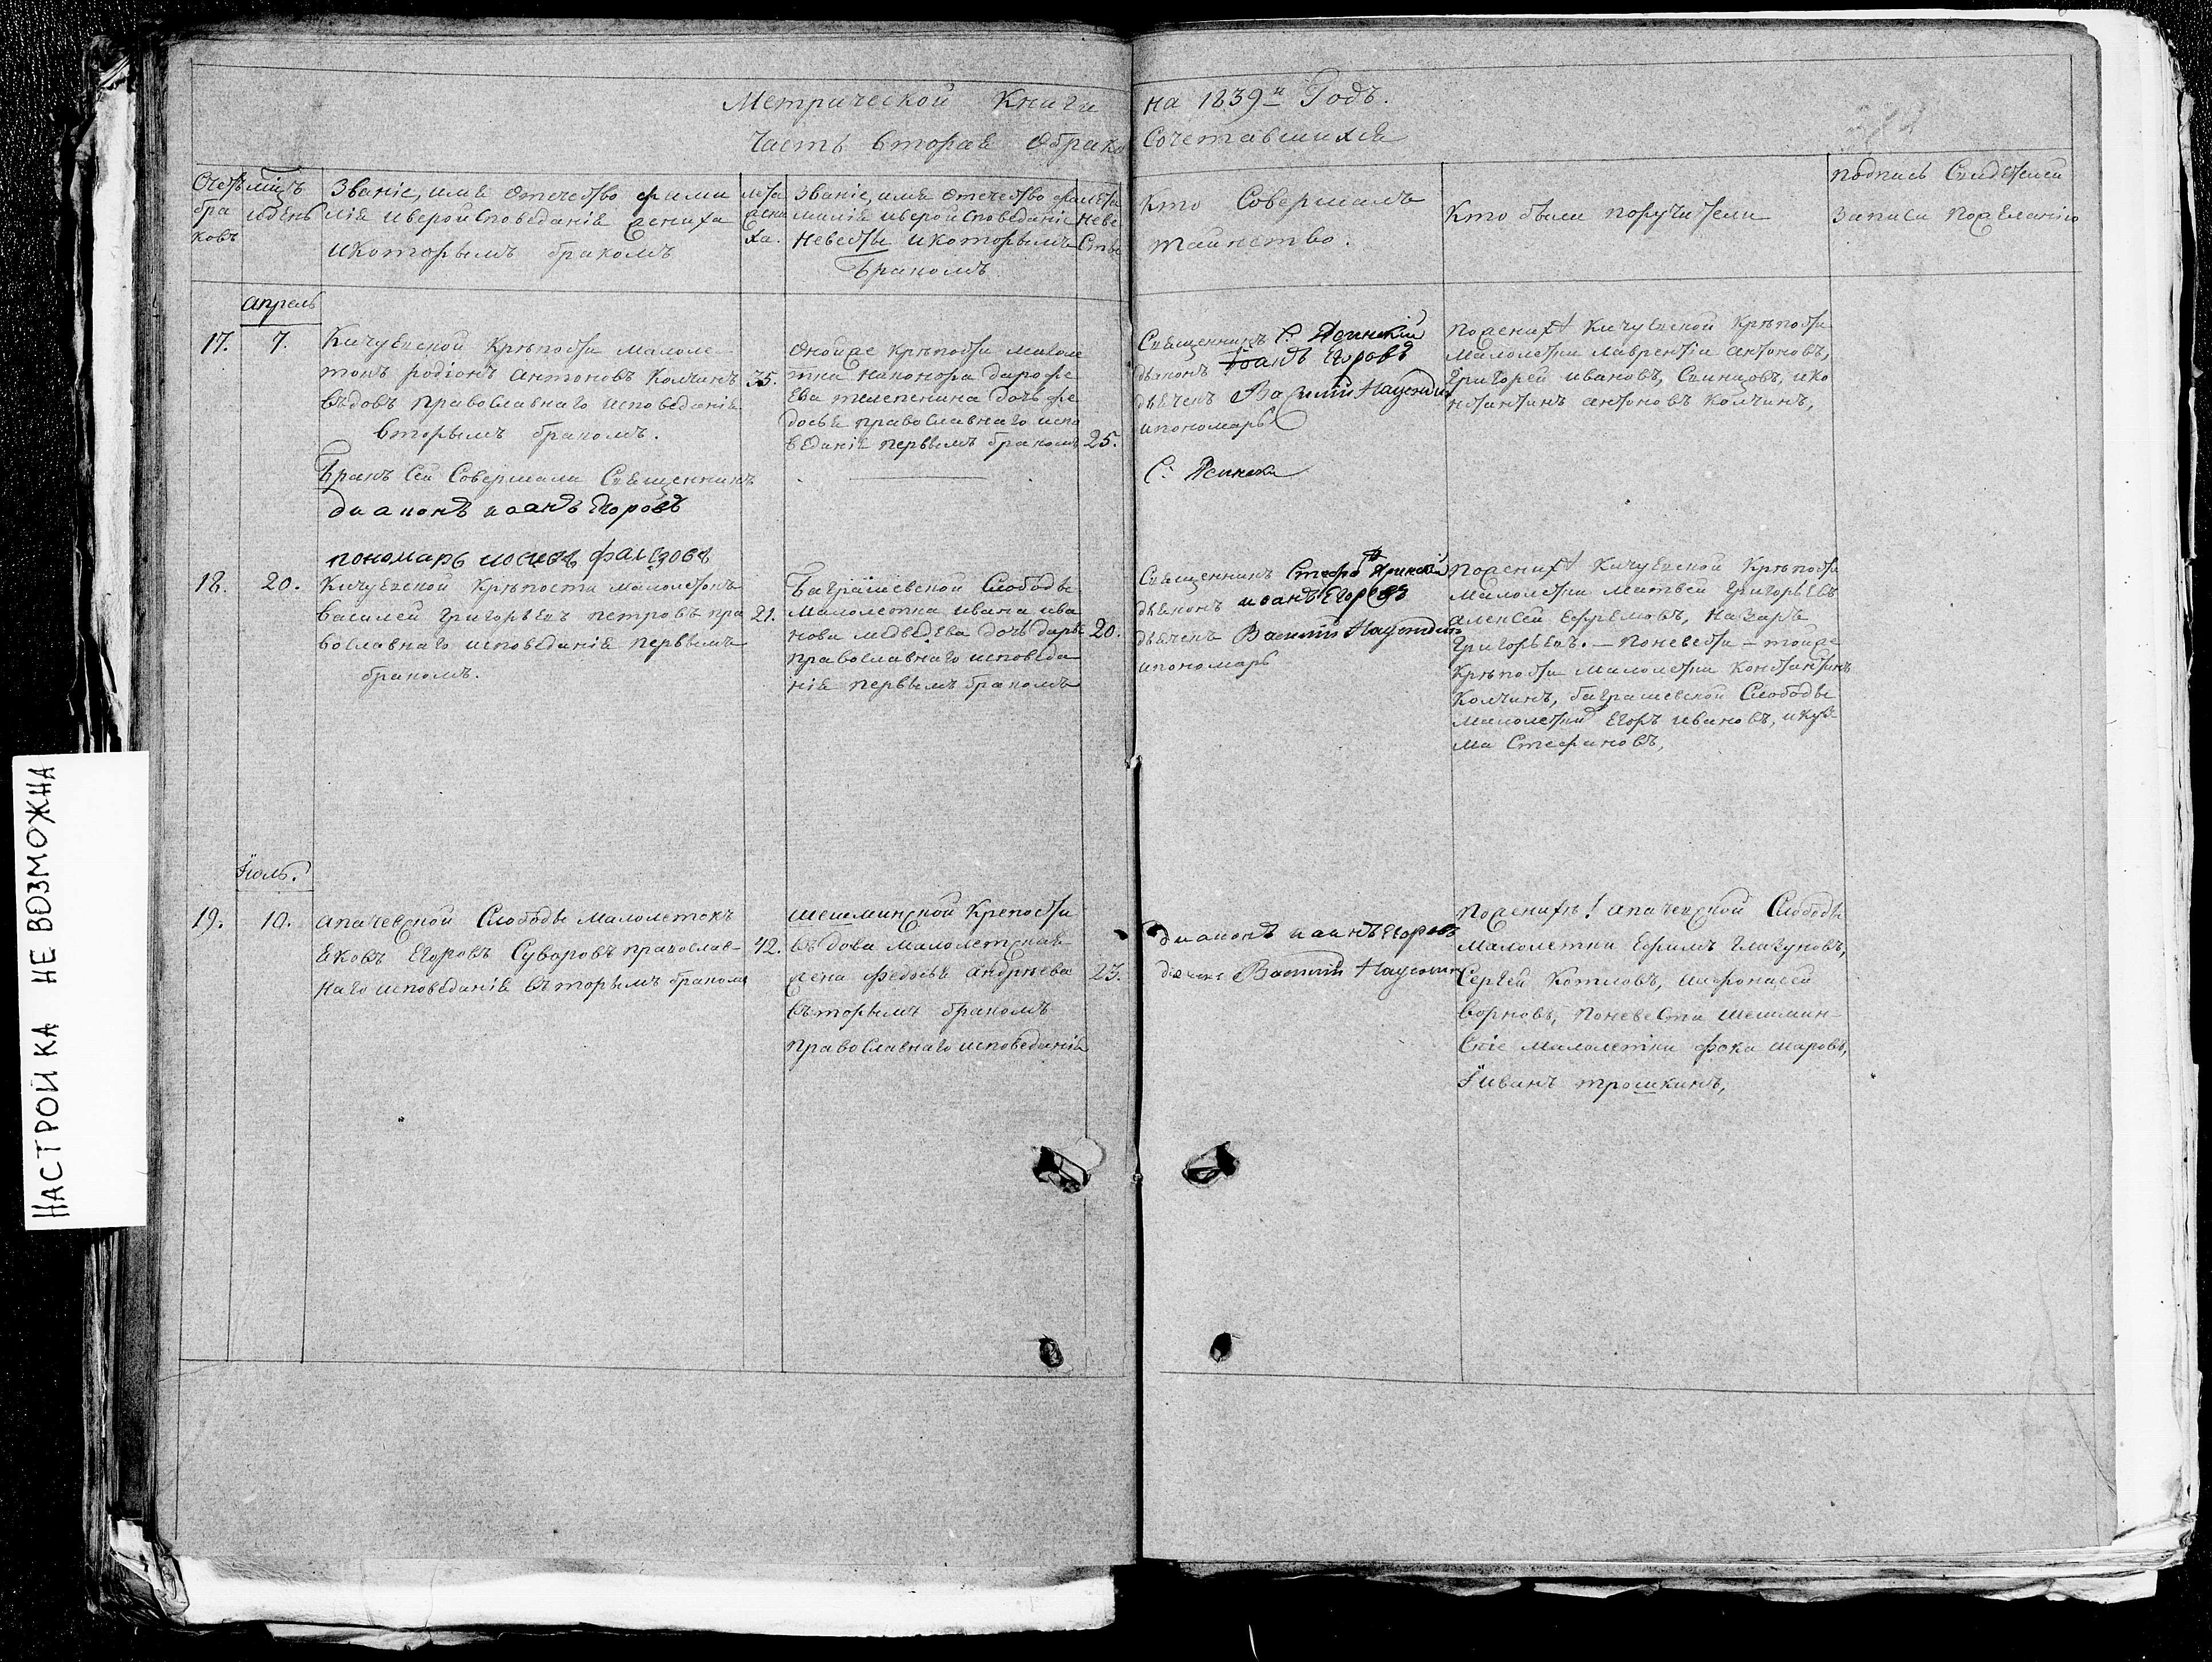 Метрической Книги на 1839й Годъ.
Часть вторая о брако Сочетавшихся
Очетъ бра ковъ
мцъ и день
Званіе, имя отечество фами
лія и верой споведанія жениха
и которымъ бракомъ
лета жени ха.
Званіе, имя отечество фа
милія и верой споведаніе
Невесты и которымъ
бракомъ
лета неве сты
Кто Совершалъ
таинство.
Кто были поручители
подпись Свидетелей
записи по желанію
апрель
17. 7.
Кичуевской Крѣпости малоле
токъ родіонъ антоновъ Колчинъ 35.
вѣдовъ православнаго исповеданія
вторымъ бракомъ.
Бракъ Сей Совершали Священникъ
диаконъ иоанъ Егоровъ
пономарь
оной же крѣпости малоле
тка
дочь фе
досья православнаго испо
веданія первымъ бракомъ 25.
Священникъ С:
дьяконъ Іоанъ Егоровъ
дьячекъ Василій
и пономарь
С:
По жениху Кичуевской Крѣпости
малолетки лаврентіи антоновъ,
григорей ивановъ, Свинцовъ, и ко
нстантинъ антоновъ колчинъ,
18. 20.
Кичуевской Крѣпости малолетокъ
василей григорьевъ петровъ пра 21.
вославнаго исповеданія первымъ
бракомъ.
Баграшевской Слободы
малолетка ивана ива
нова медведева дочь дарья 20.
православнаго исповеда
нія первымъ бракомъ
Священникъ
дьяконъ иоанъ Егоровъ
дьячекъ Василій
и пономарь
По жениху Кичуевской Крѣпости
малолетки матвей григорьевъ
алексей ефремовъ, назаръ
григорьевъ. — по невести — той же
Крѣпости малолетки Константинъ
Колчинъ, баграшевской Слободы
малолетки Егоръ ивановъ, и куз
ма Стефановъ,
Іюль.
19. 10.
апачевской Слободы малолетокъ
яковъ Егоровъ Суворовъ православ- 42.
наго исповеданія вѣторымъ бракомъ
шешминской Крепости
вѣдова малолетская
жена федосья андрѣева 23.
вѣторымъ бракомъ
православнаго исповеданія
диаконъ иоанъ Егоровъ
Василій
По женихѣ! апачевской Слободы
малолетки Ефимъ глазуновъ,
Сергей Котловъ, и афонасей
по невести шешмин-
скіе малолетки фока шаровъ,
Іиванъ трошкинъ,
НАСТРОЙКА НЕ ВОЗМОЖНА